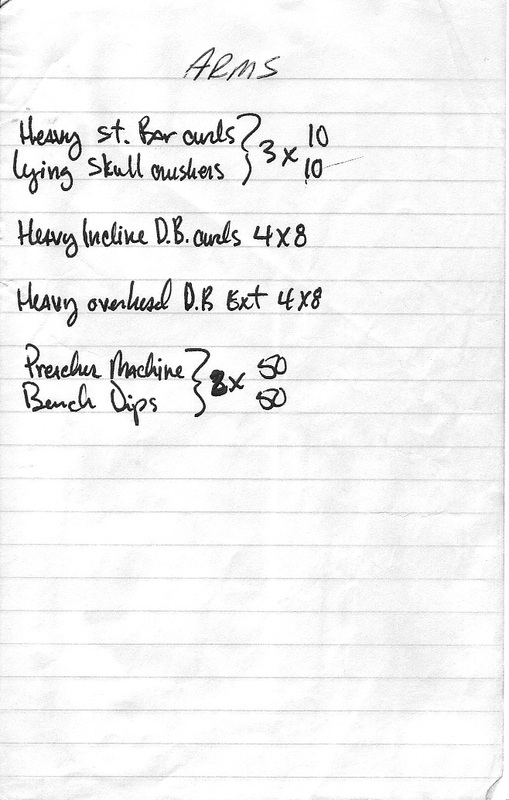 ARMS
Heavy st. Bar curls } 3 x 10
lying Skull crushers } 10
Heavy Incline D.B. curls 4x8
Heavy overhead D.B Ext 4x8
Preacher Machine } x 50
Bench Dips } 50